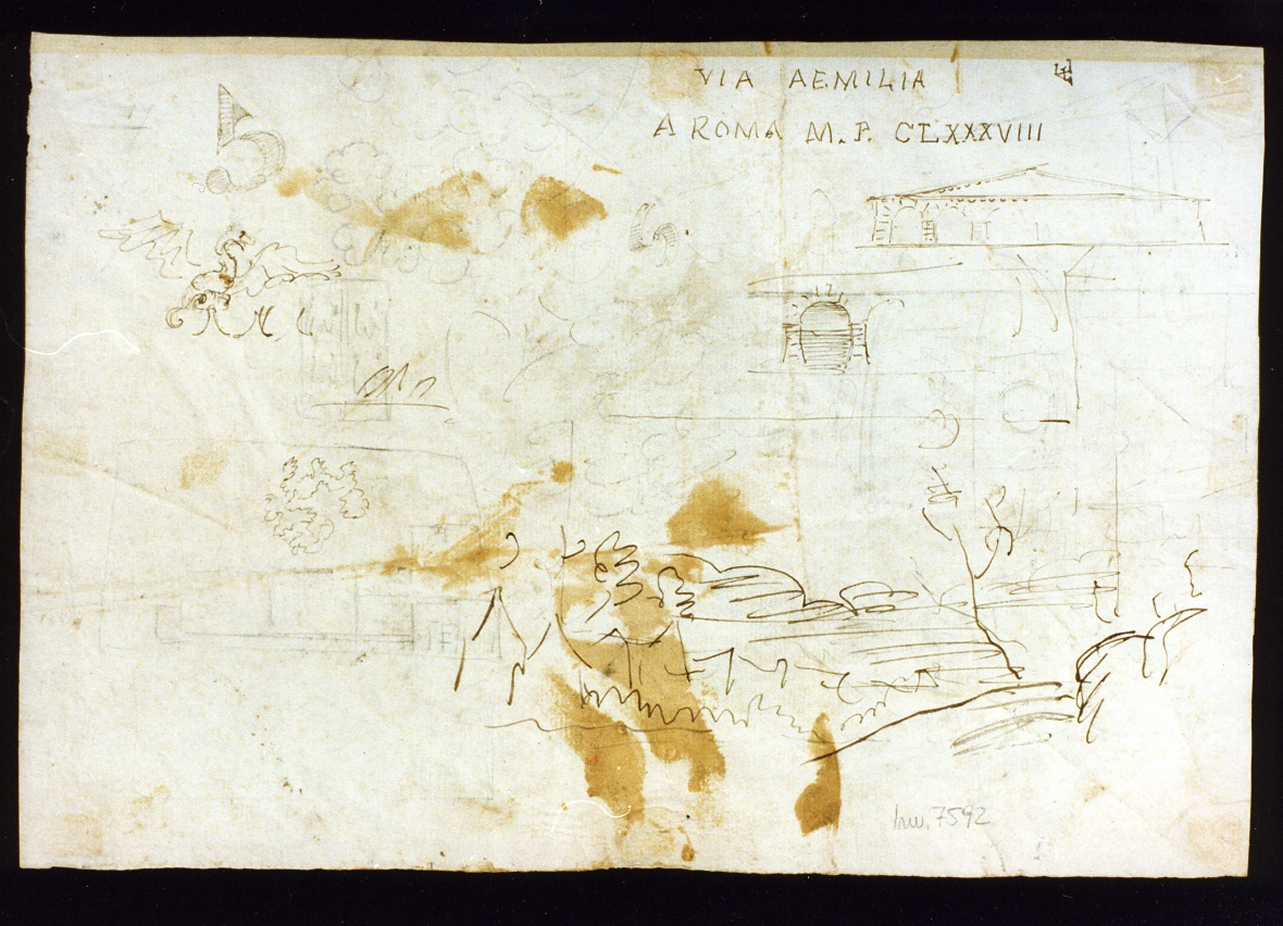 VIA AEMILIA
A ROMA M. P. CLXXXVIII
5
Inv. 7592